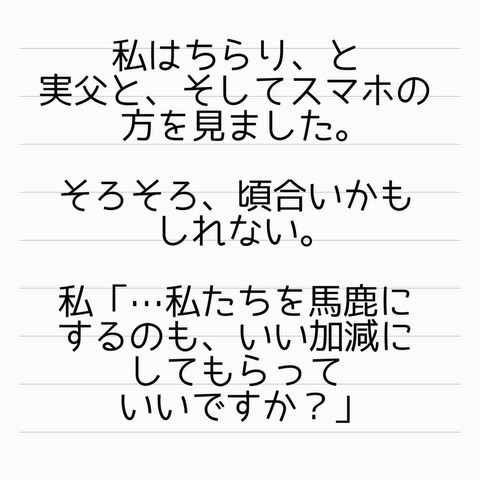 私はちらり、と
実父と、そしてスマホの
方を見ました。
そろそろ、頃合いかも
しれない。
私「…私たちを馬鹿に
するのも、いい加減に
してもらって
いいですか？」